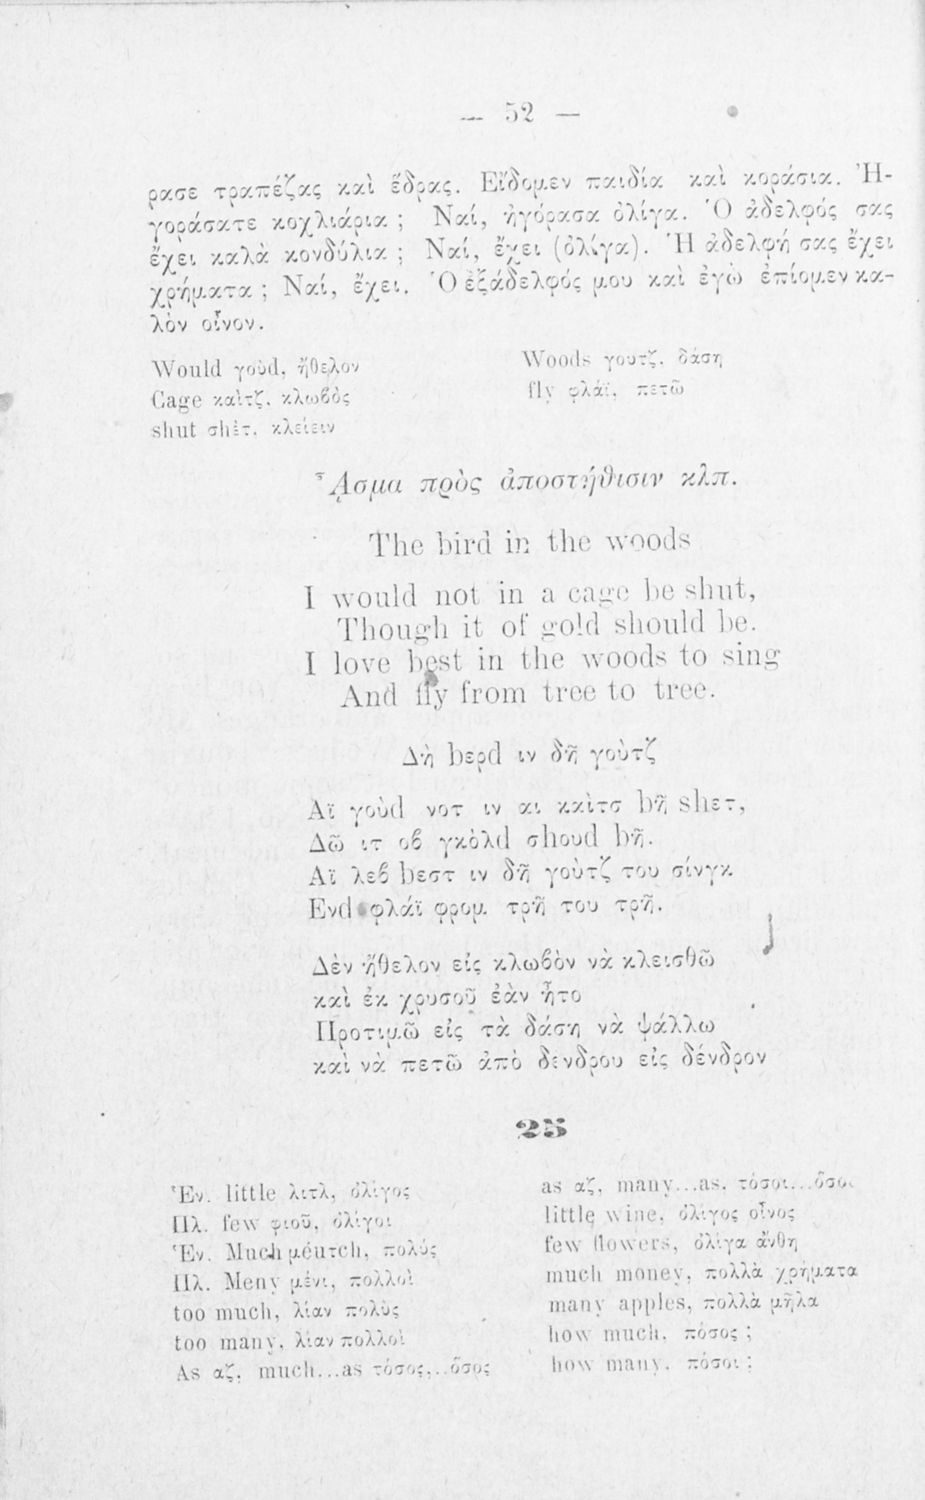 — 52 —
ρασε τραπέζας καὶ ἕδρας. Εἴδομεν παιδία καὶ κοράσια. Ἠ-
γοράσατε κοχλιάρια ; Ναί, ἠγόρασα ὀλίγα. Ὁ ἀδελφός σας
ἔχει καλὰ κονδύλια ; Ναί, ἔχει (ὀλίγα). Ἡ ἀδελφή σας ἔχει
χρήματα ; Ναί, ἔχει. Ὁ ἐξάδελφός μου καὶ ἐγὼ ἐπίομεν κα-
λὸν οἶνον.
Would γοὺd, ἤθελον
Cage καὶτζ, κλωβὸς
shut σhὲτ. κλείειν
Woods γουτζ. δάση
fly φλάϊ, πετῶ
ᾎσμα πρὸς ἀποστήθισιν κλπ.
The bird in the woods
I would not in a cage be shut,
Though it of gold should be.
I love best in the woods to sing
And fly from tree to tree.
Δὴ bερd ιν δῆ γοὺτζ
Αϊ γοὺd νοτ ιν αι καὶτσ bῆ shετ,
Δῶ ιτ οϐ γκὸλd σhουd bῆ.
Αϊ λεϐ bεστ ιν δῆ γοὺτζ του σίνγκ
Ενd φλάϊ φρομ τρῆ του τρῆ.
Δὲν ἤθελον εἰς κλωβὸν νὰ κλεισθῶ
καὶ ἐκ χρυσοῦ ἐὰν ἦτο
Προτιμῶ εἰς τὰ δάση νὰ ψάλλω
καὶ νὰ πετῶ ἀπὸ δένδρου εἰς δένδρον
25
Ἑν. little λιτλ, ὀλίγος
Πλ. few φιοῦ, ὀλίγοι
Ἑν. Much μέuτch, πολύς
Πλ. Meny μένι, πολλοὶ
too much, λίαν πολὺς
too many, λίαν πολλοὶ
As αζ, much...as τόσος,..ὅσος
as αζ, many...as. τόσοι...ὅσοι
little wine, ὀλίγος οἶνος
few flowers, ὀλίγα ἄνθη
much money, πολλὰ χρήματα
many apples, πολλὰ μῆλα
how much, πόσος ;
how many, πόσοι ;